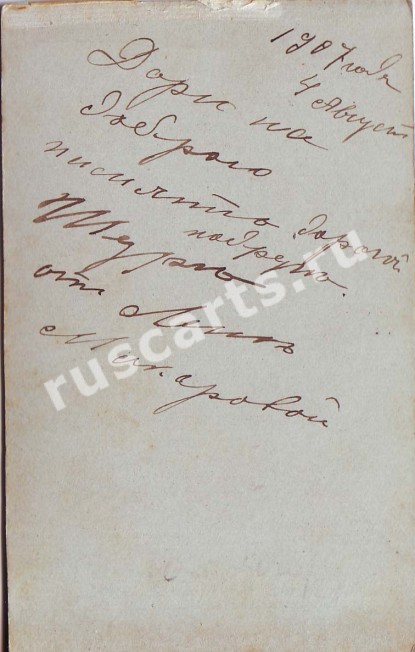 1907 года
4 Август
Дарю на
добрую
память дорогой
подруге
Шуре
от
Макаровой
ruscarts.ru